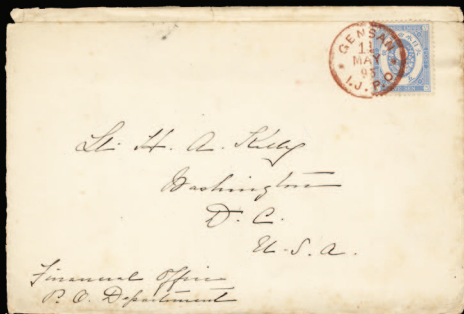 GENSAN
MAY
I.J.P.O.
H. A. Kelly
Washington
D. C.
U. S. A.
Financial Office
P. O. Department